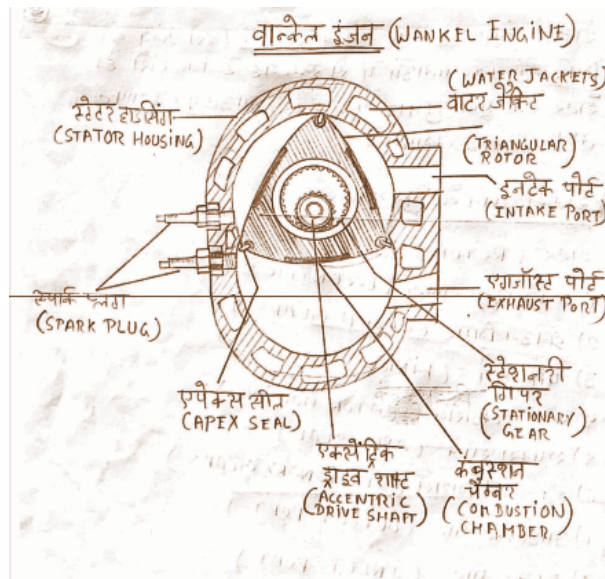 वान्केल इंजन (WANKEL ENGINE)
(WATER JACKETS)
वाटर जैकिट
स्टेटर हाउसिंग
(STATOR HOUSING)
(TRIANGULAR
ROTOR
इनटेक पोर्ट
(INTAKE PORT)
एगजॉस्ट पोर्ट
(EXHAUST PORT)
स्पार्क प्लग
(SPARK PLUG)
स्टेशनरी
गियर
(STATIONARY
GEAR)
एपेक्स सील
(APEX SEAL)
एक्सेंट्रिक
ड्राइव शाफ्ट
(ACCENTRIC
DRIVE SHAFT)
कंबुस्शन
चेम्बर
(COMBUSTION
CHAMBER)